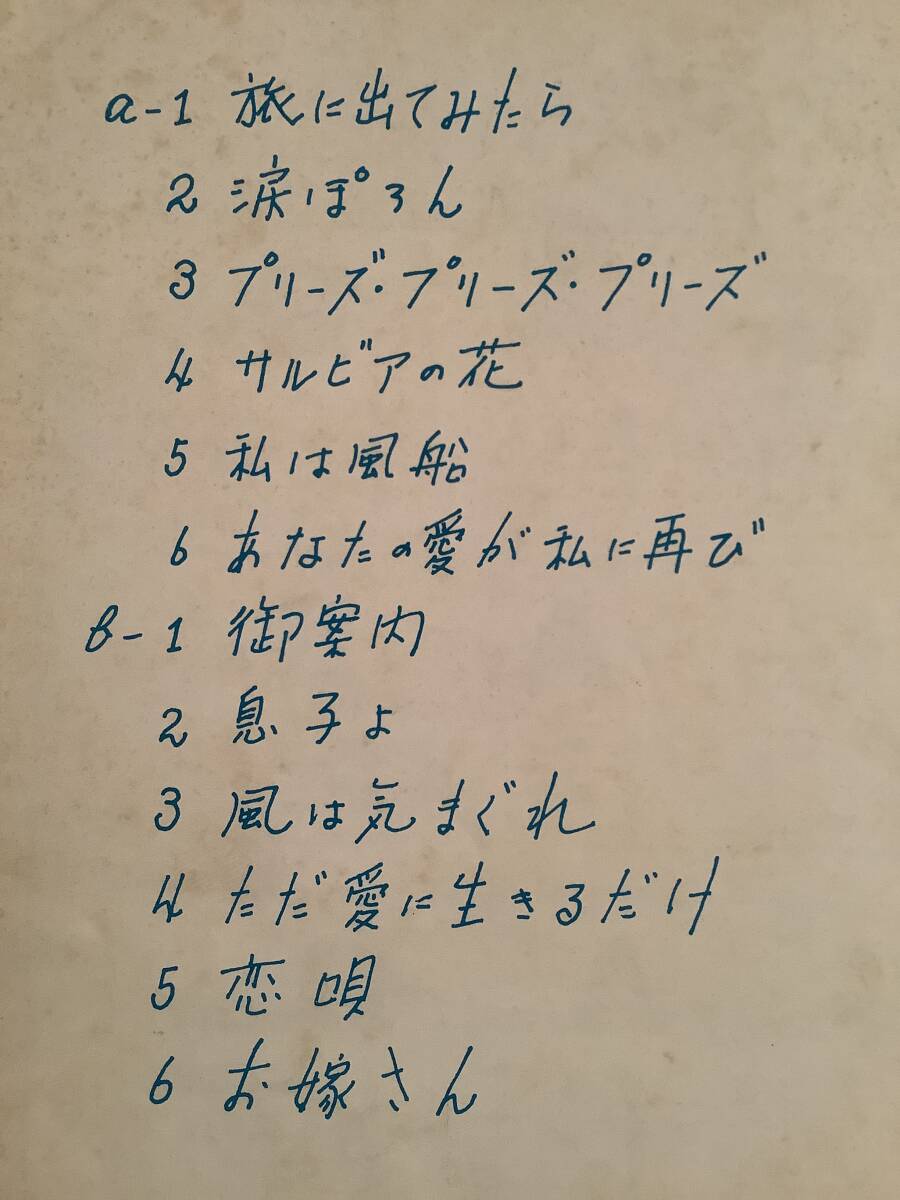 a-1 旅に出てみたら
2 涙ぽろん
3 プリーズ・プリーズ・プリーズ
4 サルビアの花
5 私は風船
6 あなたの愛が私に再び
b-1 御案内
2 息子よ
3 風は気まぐれ
4 ただ愛に生きるだけ
5 恋唄
6 お嫁さん